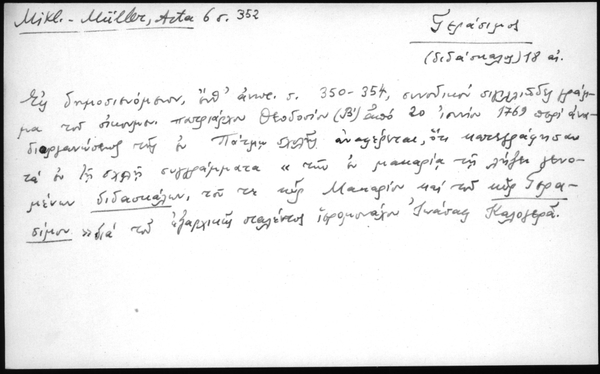 Mikl.-Müller, Acta 6 σ. 352
Γεράσιμος
(διδάσκαλος) 18 αἰ.
Εἰς δημοσιευόμενον, ὑπ' ἀριθ. σ. 350-354, συνοδικὸν σιγιλλιῶδες γράμ-
μα τοῦ οἰκουμ. πατριάρχου Θεοδοσίου (Β') ἀπὸ 20 ἰουνίου 1769 περὶ ἀνα-
διοργανώσεως τῆς ἐν Πάτμῳ σχολῆς ἀναφέρεται, ὅτι κατεγράφησαν
τὰ ἐν τῇ σχολῇ συγγράμματα « τῶν ἐν μακαρίᾳ τῇ λήξει γενο-
μένων διδασκάλων, τοῦ τε κὺρ Μακαρίου καὶ τοῦ κὺρ Γερα-
σίμου » διὰ τοῦ ἐξαρχικῶς σταλέντος ἱερομονάχου Καλογερᾶ.